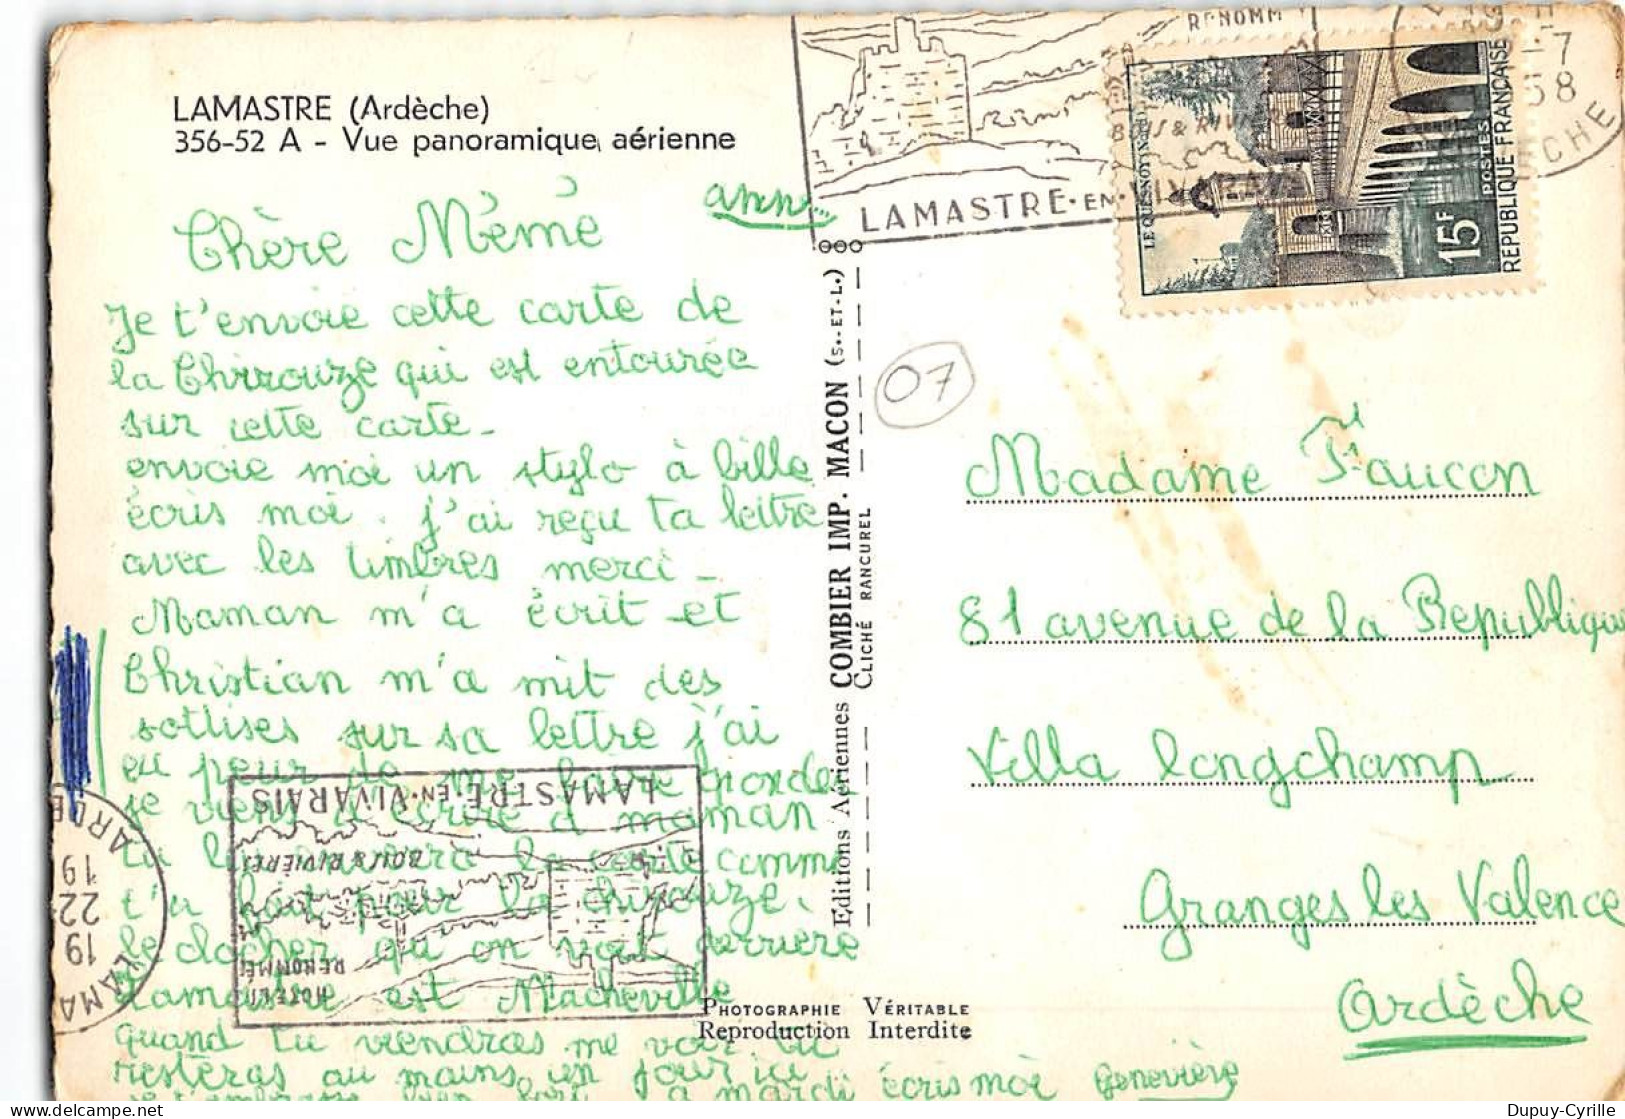 LAMASTRE (Ardèche)
356-52 A - Vue panoramique aérienne
Chère Mémé
Je t'envoie cette carte de
la Chirrouze qui est entourée
sur cette carte -
envoie moi un stylo à bille
écris moi. j'ai reçu ta lettre
avec les timbres merci -
Maman m'a écrit et
Christian m'a mit des
sottises sur sa lettre j'ai
eu peur de me faire gronder
je viens d'écrire à maman
tu lui la carte comme
t'a pour la chirouze.
le clocher qu on voit derrière
Lamastre est Macheville
Quand tu viendras me voir tu
resteras au moins un jour ici
je t'embrasse bien fort à mardi écris moi Geneviève
RENOMM
BOIS & RIVIÈRE
LAMASTRE-EN-VIVARAIS
7
58
CHE
LE QUESNOY NORD
15F
POSTES
REPUBLIQUE FRANÇAISE
Editions Aériennes COMBIER IMP. MACON (S.-ET-L.)
CLICHÉ RANCUREL
07
Madame Faucon
81 avenue de la Republique
Villa Longchamp
Granges les Valence
Ardèche
LAMASTRE-EN-VIVARAIS
BOIS & RIVIÈRE
RENOMMÉ
HOTEL
LAMA
19
22
19
ARDE
PHOTOGRAPHIE VÉRITABLE
Reproduction Interdite
Dupuy-Cyrille